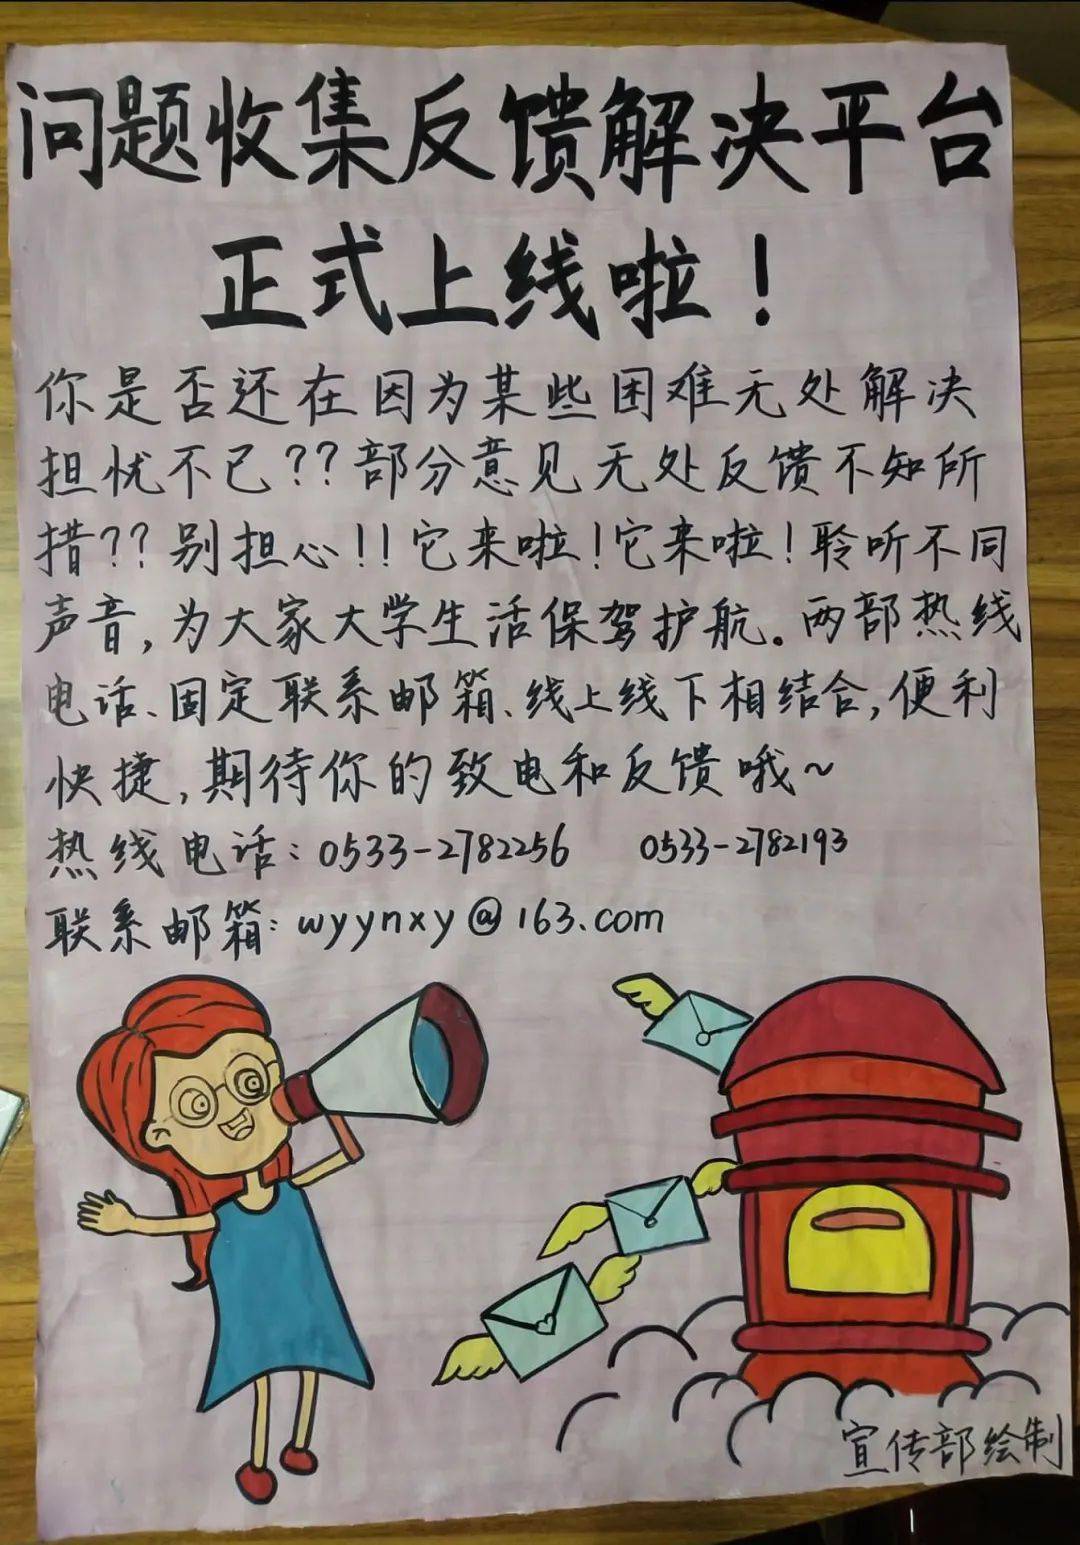 问题收集反馈解决平台
正式上线啦!
你是否还在因为某些困难无处解决
担忧不已??部分意见无处反馈不知所
措??别担心!!它来啦!它来啦!聆听不同
声音,为大家大学生活保驾护航。两部热线
电话、固定联系邮箱、线上线下相结合,便利
快捷,期待你的致电和反馈哦~
热线电话:0533-2782256 0533-2782193
联系邮箱:wyynxy@163.com
宣传部绘制